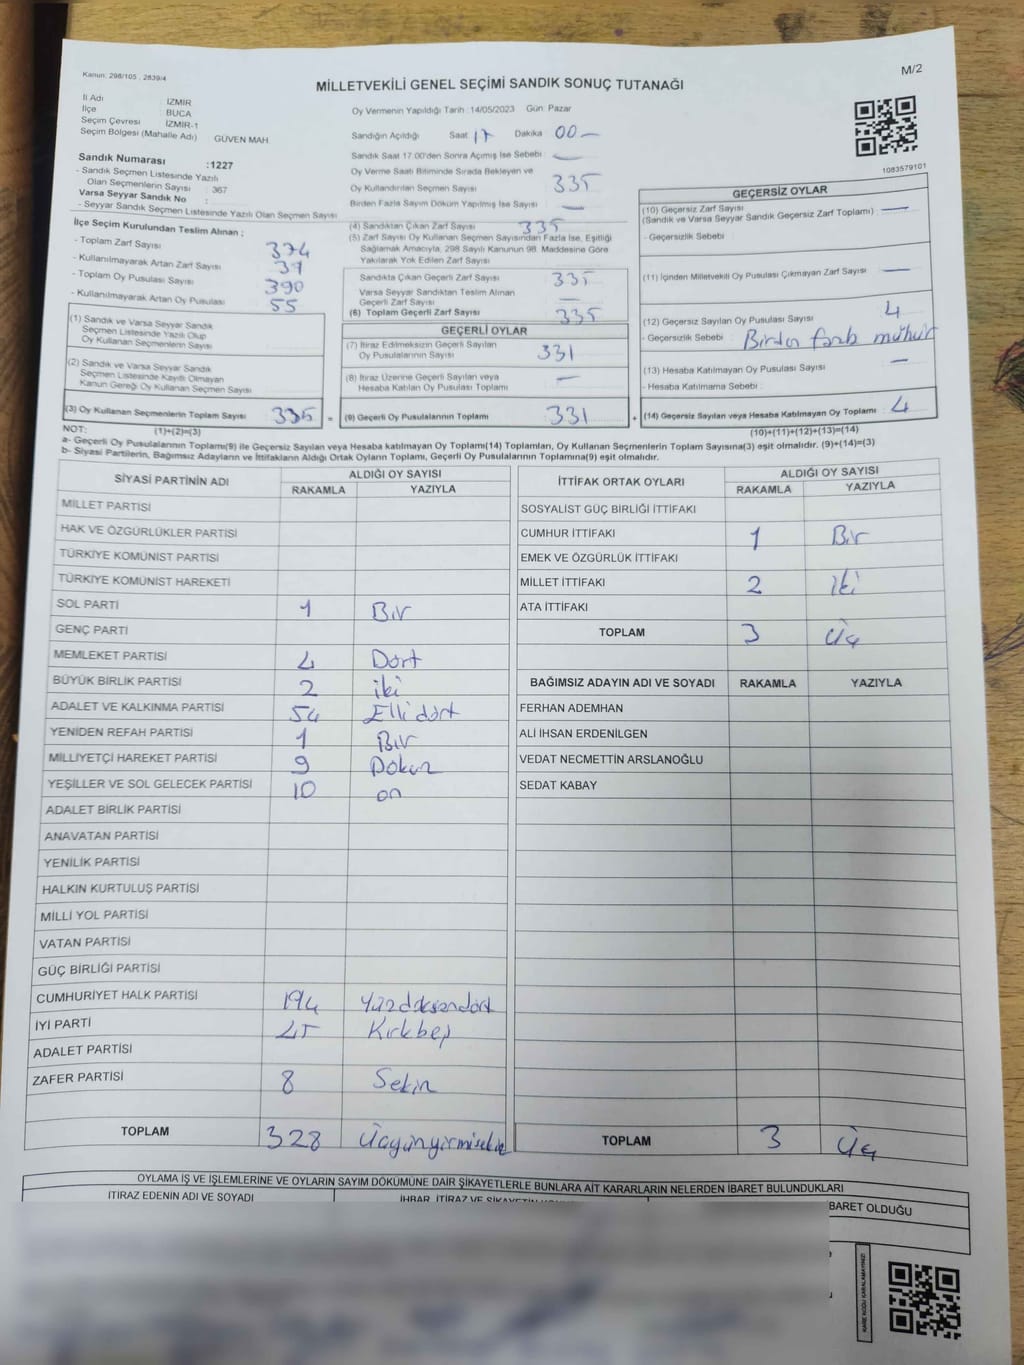 Kanun: 298/105 , 2839/4
M/2
MİLLETVEKİLİ GENEL SEÇİMİ SANDIK SONUÇ TUTANAĞI
İl Adı : İZMİR
İlçe : BUCA
Seçim Çevresi : İZMİR-1
Seçim Bölgesi (Mahalle Adı) GÜVEN MAH.
Sandık Numarası :1227
- Sandık Seçmen Listesinde Yazılı
Olan Seçmenlerin Sayısı : 367
Varsa Seyyar Sandık No :
- Seyyar Sandık Seçmen Listesinde Yazılı Olan Seçmen Sayısı
Oy Vermenin Yapıldığı Tarih :14/05/2023 Gün: Pazar
Sandığın Açıldığı Saat 17 Dakika 00 —
Sandık Saat 17.00'den Sonra Açımış İse Sebebi : —
Oy Verme Saati Bitiminde Sırada Bekleyen ve
Oy Kullandırılan Seçmen Sayısı 335
Birden Fazla Sayım Döküm Yapılmış İse Sayısı —
1083579101
İlçe Seçim Kurulundan Teslim Alınan ;
- Toplam Zarf Sayısı 374
- Kullanılmayarak Artan Zarf Sayısı
- Toplam Oy Pusulası Sayısı 390
- Kullanılmayarak Artan Oy Pusulası 55
(1) Sandık ve Varsa Seyyar Sandık
Seçmen Listesinde Yazılı Olup
Oy Kullanan Seçmenlerin Sayısı :
(2) Sandık ve Varsa Seyyar Sandık
Seçmen Listesinde Kayıtlı Olmayan
Kanun Gereği Oy Kullanan Seçmen Sayısı :
(3) Oy Kullanan Seçmenlerin Toplam Sayısı : 335 =
(1)+(2)=(3)
(4) Sandıktan Çıkan Zarf Sayısı 335
(5) Zarf Sayısı Oy Kullanan Seçmen Sayısından Fazla İse, Eşitliği
Sağlamak Amacıyla, 298 Sayılı Kanunun 98. Maddesine Göre
Yakılarak Yok Edilen Zarf Sayısı :
Sandıkta Çıkan Geçerli Zarf Sayısı 335
Varsa Seyyar Sandıktan Teslim Alınan
Geçerli Zarf Sayısı —
(6) Toplam Geçerli Zarf Sayısı 335
GEÇERLİ OYLAR
(7) İtiraz Edilmeksizin Geçerli Sayılan
Oy Pusulalarının Sayısı 331
(8) İtiraz Üzerine Geçerli Sayılan veya
Hesaba Katılan Oy Pusulası Toplamı —
(9) Geçerli Oy Pusulalarının Toplamı 331 +
GEÇERSİZ OYLAR
(10) Geçersiz Zarf Sayısı
(Sandık ve Varsa Seyyar Sandık Geçersiz Zarf Toplamı) : —
- Geçersizlik Sebebi :
(11) İçinden Milletvekili Oy Pusulası Çıkmayan Zarf Sayısı : —
(12) Geçersiz Sayılan Oy Pusulası Sayısı : 4
- Geçersizlik Sebebi : Birden fazla mühür
(13) Hesaba Katılmayan Oy Pusulası Sayısı : —
- Hesaba Katılmama Sebebi :
(14) Geçersiz Sayılan veya Hesaba Katılmayan Oy Toplamı : 4
(10)+(11)+(12)+(13)=(14)
NOT:
a- Geçerli Oy Pusulalarının Toplamı(9) ile Geçersiz Sayılan veya Hesaba katılmayan Oy Toplamı(14) Toplamları, Oy Kullanan Seçmenlerin Toplam Sayısına(3) eşit olmalıdır. (9)+(14)=(3)
b- Siyasi Partilerin, Bağımsız Adayların ve İttifakların Aldığı Ortak Oyların Toplamı, Geçerli Oy Pusulalarının Toplamına(9) eşit olmalıdır.
SİYASİ PARTİNİN ADI ALDIĞI OY SAYISI
RAKAMLA YAZIYLA
MİLLET PARTİSİ
HAK VE ÖZGÜRLÜKLER PARTİSİ
TÜRKİYE KOMÜNİST PARTİSİ
TÜRKİYE KOMÜNİST HAREKETİ
SOL PARTİ 1 Bir
GENÇ PARTİ
MEMLEKET PARTİSİ 4 Dört
BÜYÜK BİRLİK PARTİSİ 2 iki
ADALET VE KALKINMA PARTİSİ 54 Elli dört
YENİDEN REFAH PARTİSİ 1 Bir
MİLLİYETÇİ HAREKET PARTİSİ 9 Dokuz
YEŞİLLER VE SOL GELECEK PARTİSİ 10 on
ADALET BİRLİK PARTİSİ
ANAVATAN PARTİSİ
YENİLİK PARTİSİ
HALKIN KURTULUŞ PARTİSİ
MİLLİ YOL PARTİSİ
VATAN PARTİSİ
GÜÇ BİRLİĞİ PARTİSİ
CUMHURİYET HALK PARTİSİ 194 Yüzdoksandört
İYİ PARTİ 45 Kırkbeş
ADALET PARTİSİ
ZAFER PARTİSİ 8 Sekiz
TOPLAM 328 Üçyüzyirmisekiz
İTTİFAK ORTAK OYLARI ALDIĞI OY SAYISI
RAKAMLA YAZIYLA
SOSYALİST GÜÇ BİRLİĞİ İTTİFAKI
CUMHUR İTTİFAKI 1 Bir
EMEK VE ÖZGÜRLÜK İTTİFAKI
MİLLET İTTİFAKI 2 iki
ATA İTTİFAKI
TOPLAM 3 Üç
BAĞIMSIZ ADAYIN ADI VE SOYADI RAKAMLA YAZIYLA
FERHAN ADEMHAN
ALİ İHSAN ERDENİLGEN
VEDAT NECMETTİN ARSLANOĞLU
SEDAT KABAY
TOPLAM 3 Üç
OYLAMA İŞ VE İŞLEMLERİNE VE OYLARIN SAYIM DÖKÜMÜNE DAİR ŞİKAYETLERLE BUNLARA AİT KARARLARIN NELERDEN İBARET BULUNDUKLARI
İTİRAZ EDENİN ADI VE SOYADI
İHBAR, İTİRAZ VE ŞİKAYETİN
BARET OLDUĞU
KARE KODU KARALAMAYINIZ!